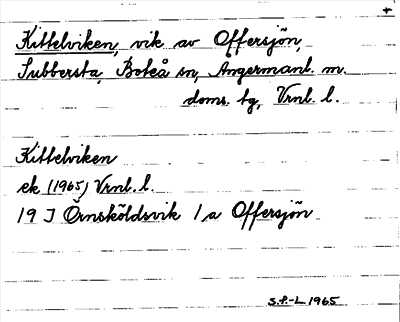 Kittelviken, vik av Offersjön,
Subbersta, Boteå sn, Ångermanl. m.
doms. tg, Vrnl. l.
Kittelviken
ek (1965) Vrnl. l.
19 J Örnsköldsvik 1 a Offersjön
S.P.-L 1965